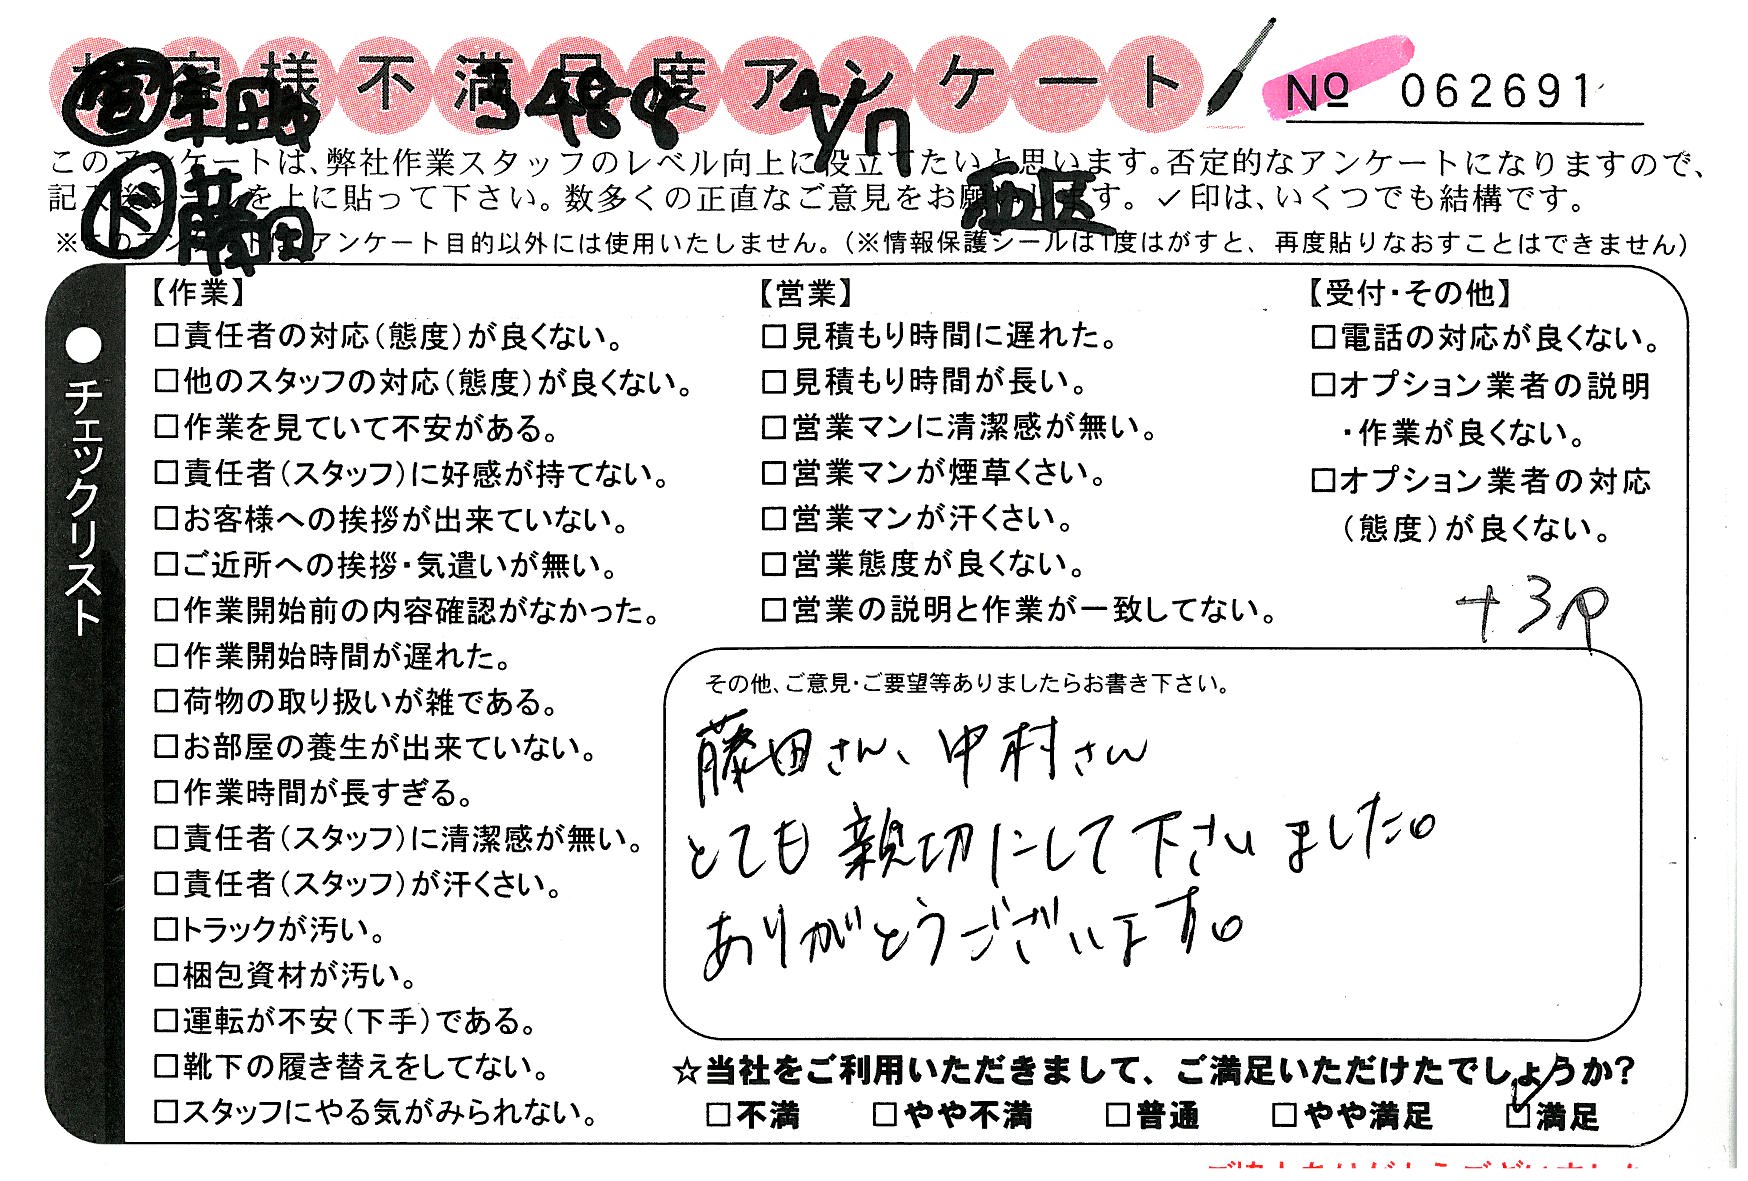 お客様不満足度アンケート
No 062691
㊂ 3488 4/17
このアンケートは、弊社作業スタッフのレベル向上に役立てたいと思います。否定的なアンケートになりますので、
記入後シールを上に貼って下さい。数多くの正直なご意見をお願いします。✓印は、いくつでも結構です。
※このアンケートは、アンケート目的以外には使用いたしません。（※情報保護シールは1度はがすと、再度貼りなおすことはできません）
ド 藤田
西区
●チェックリスト
【作業】
□責任者の対応（態度）が良くない。
□他のスタッフの対応（態度）が良くない。
□作業を見ていて不安がある。
□責任者（スタッフ）に好感が持てない。
□お客様への挨拶が出来ていない。
□ご近所への挨拶・気遣いが無い。
□作業開始前の内容確認がなかった。
□作業開始時間が遅れた。
□荷物の取り扱いが雑である。
□お部屋の養生が出来ていない。
□作業時間が長すぎる。
□責任者（スタッフ）に清潔感が無い。
□責任者（スタッフ）が汗くさい。
□トラックが汚い。
□梱包資材が汚い。
□運転が不安（下手）である。
□靴下の履き替えをしてない。
□スタッフにやる気がみられない。
【営業】
□見積もり時間に遅れた。
□見積もり時間が長い。
□営業マンに清潔感が無い。
□営業マンが煙草くさい。
□営業マンが汗くさい。
□営業態度が良くない。
□営業の説明と作業が一致してない。
【受付・その他】
□電話の対応が良くない。
□オプション業者の説明
・作業が良くない。
□オプション業者の対応
（態度）が良くない。
+3P
その他、ご意見・ご要望等ありましたらお書き下さい。
藤田さん、中村さん
とても親切にして下さいました。
ありがとうございます。
☆当社をご利用いただきまして、ご満足いただけたでしょうか？
□不満 □やや不満 □普通 □やや満足 ☑満足